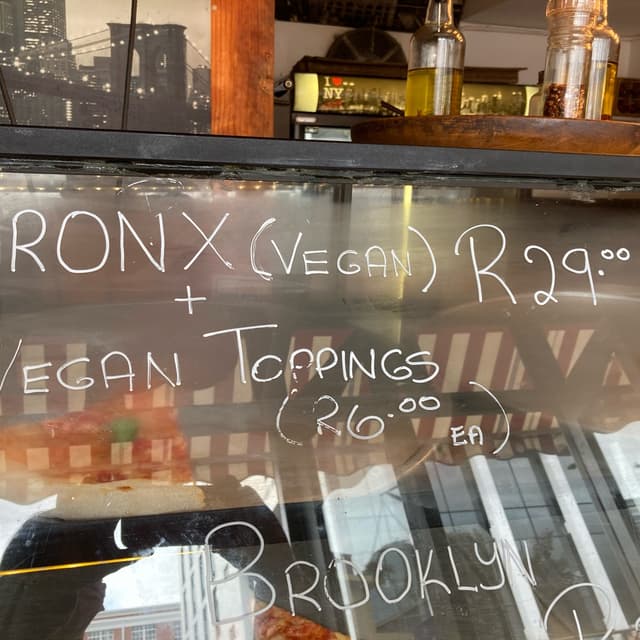 I ❤ NY
RONX (VEGAN) R29.00
+
VEGAN TOPPINGS
(R6.00 EA)
BROOKLYN